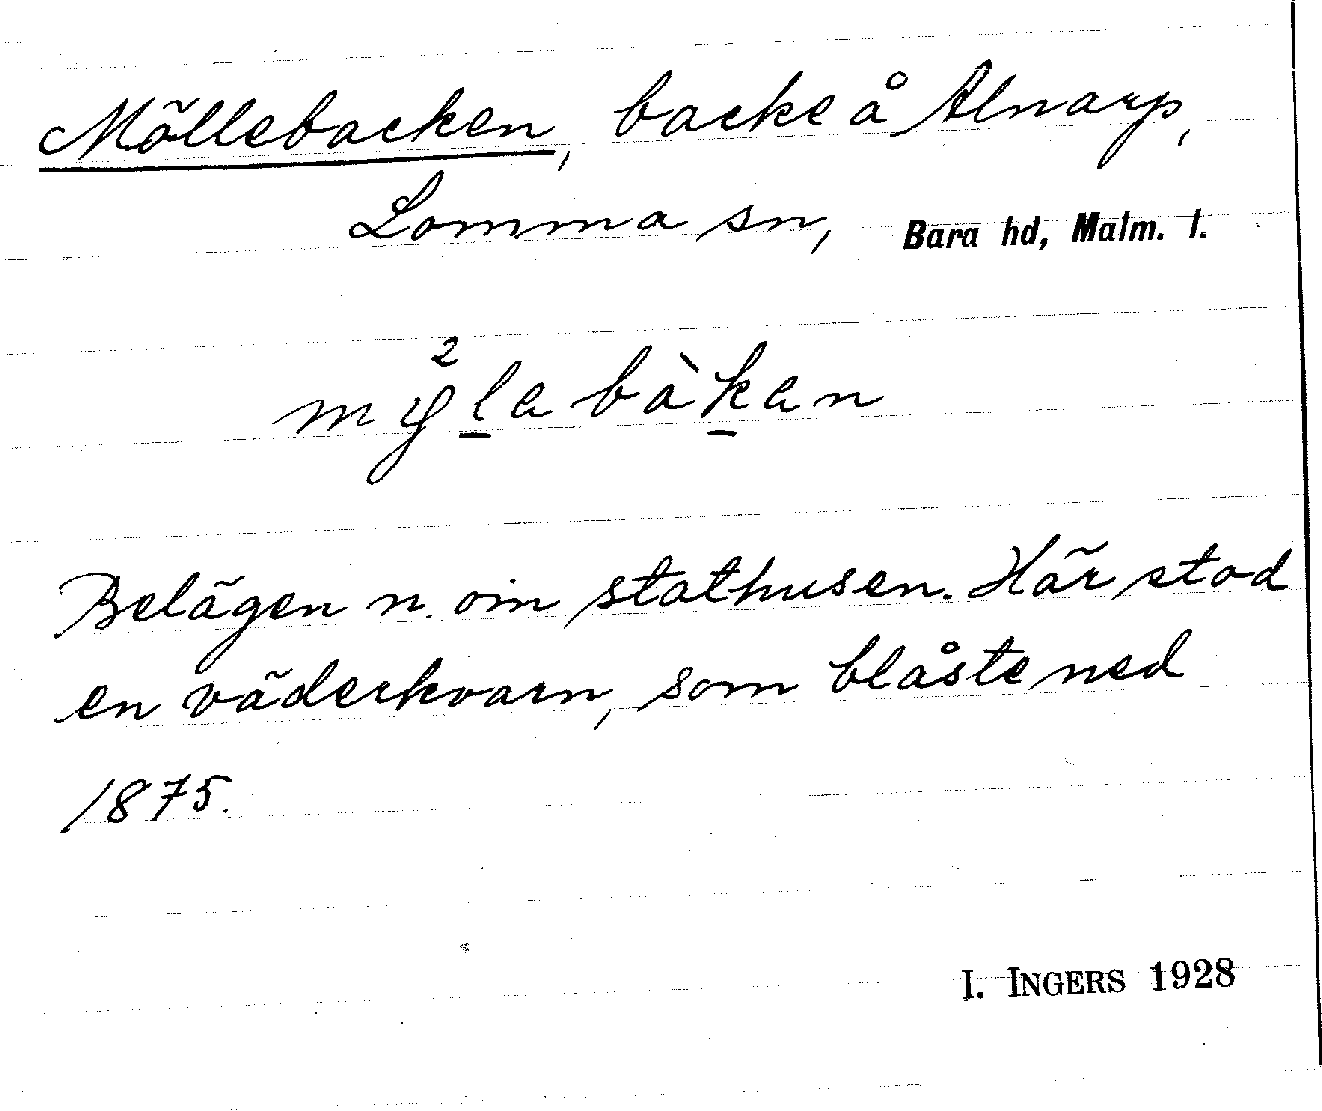 Möllebacken, backe å Alnarp,
Lomma sn, Bara hd, Malm. l.
Belägen n. om stathusen. Här stod
en väderkvarn, som blåste ned
1875.
I. INGERS 1928